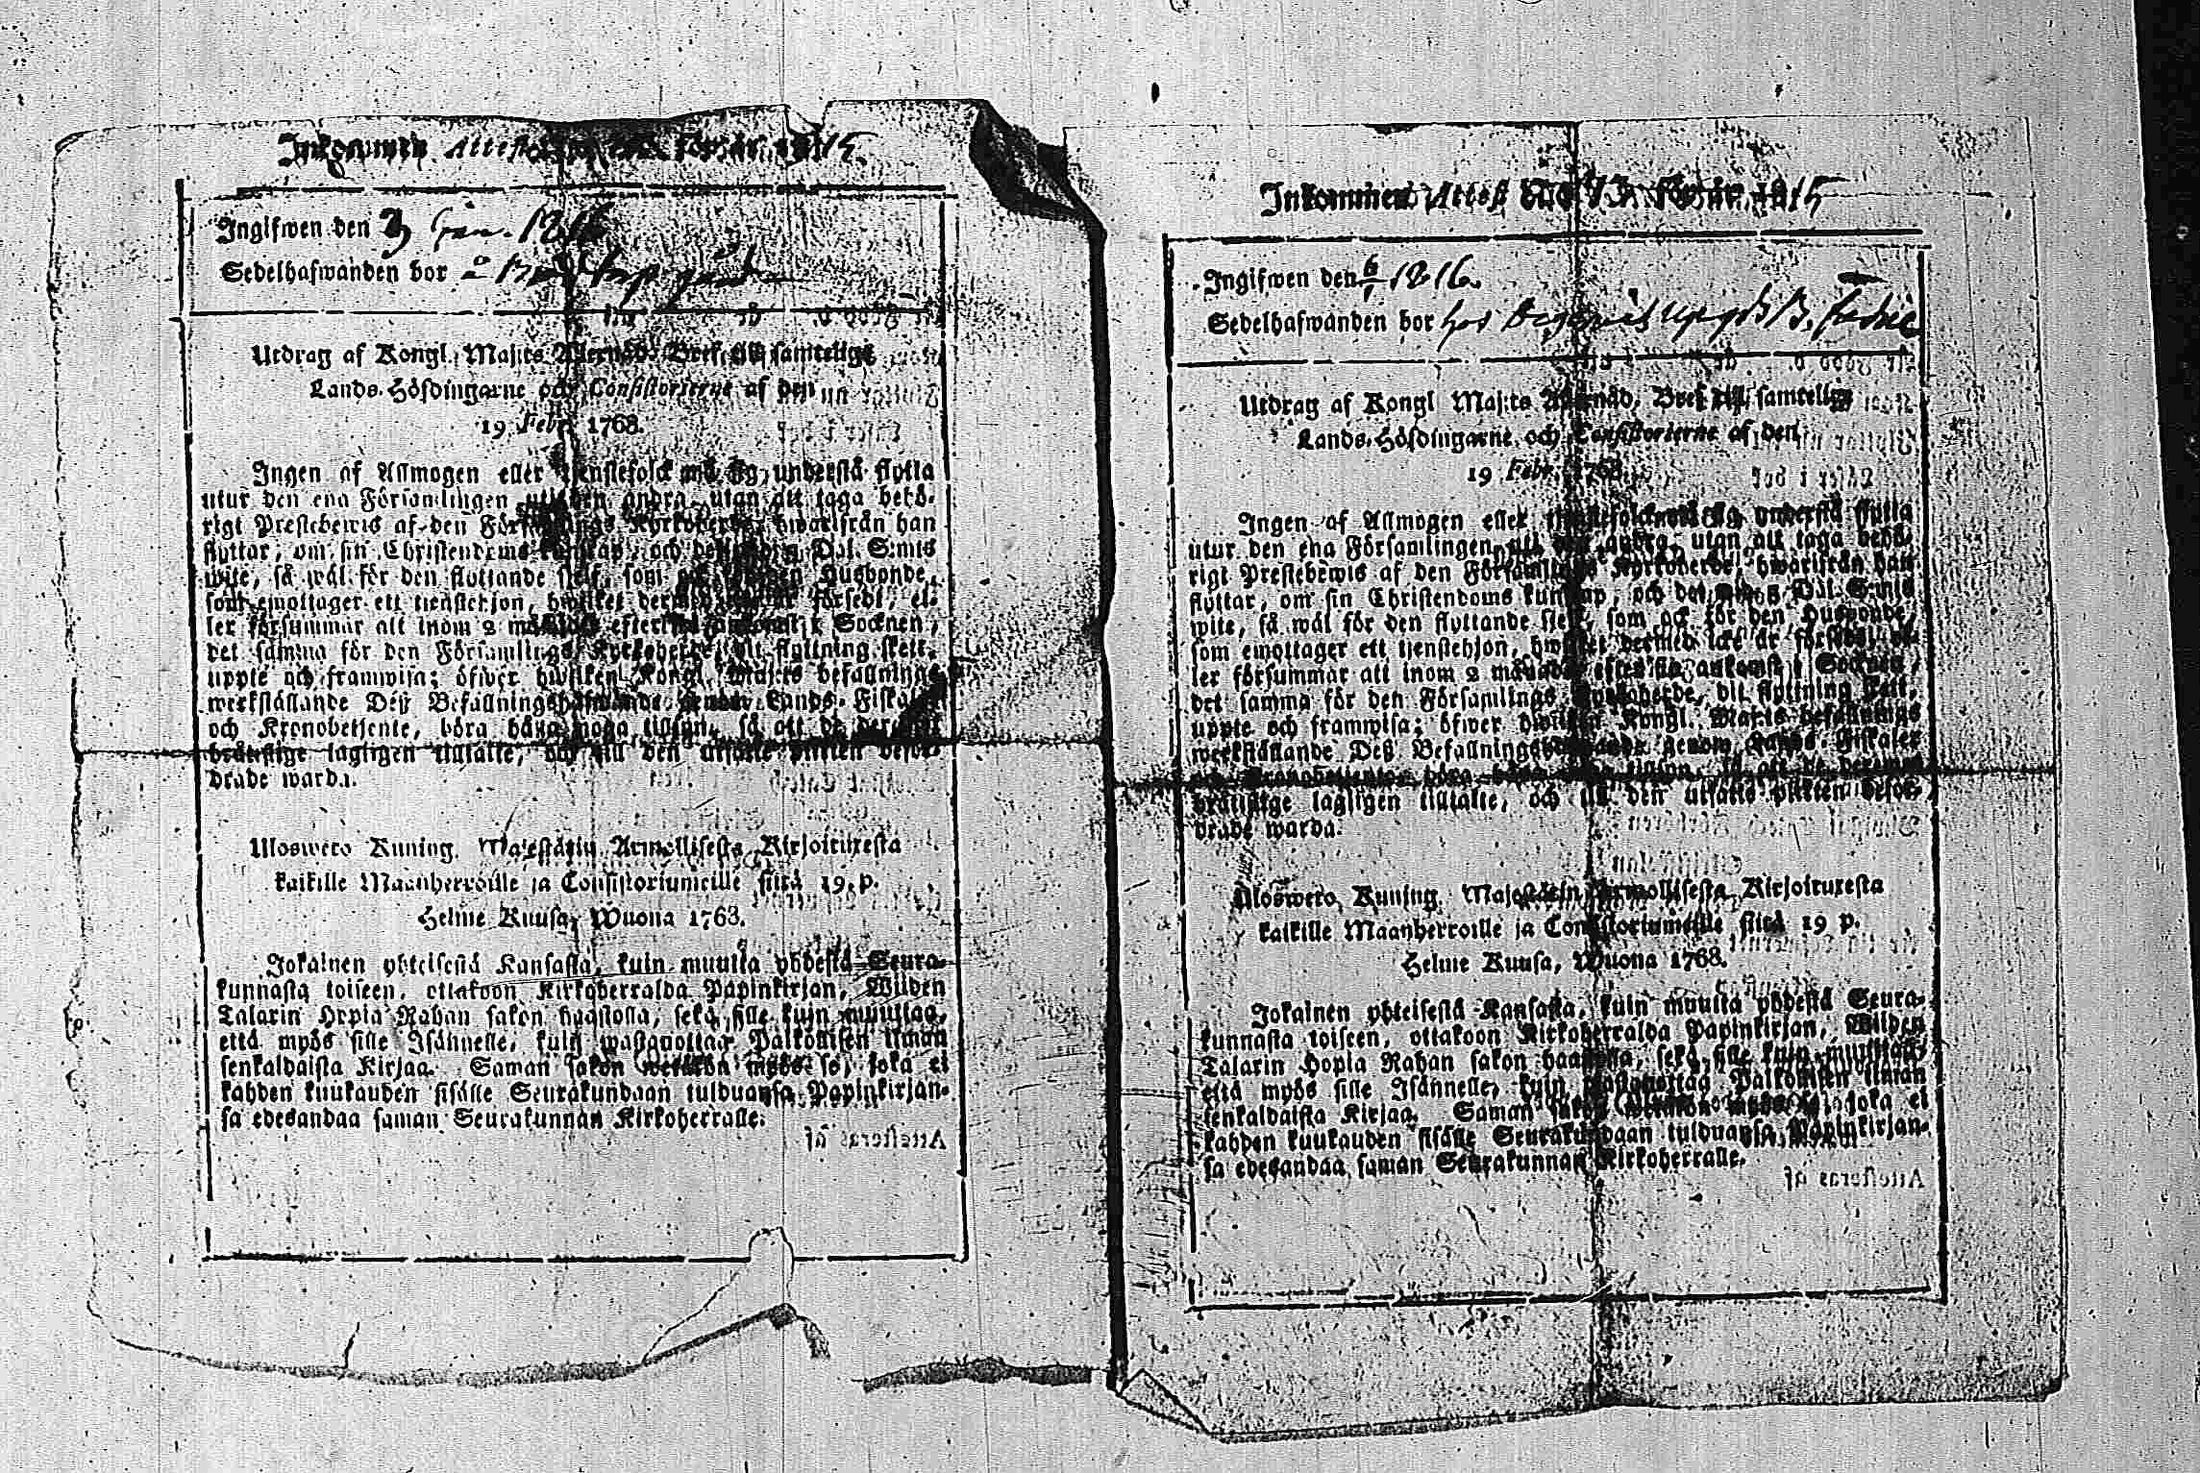 Inkommen Attest
Ingifwen den 3 Jan. 1816
Sedelhafwanden bor å
Utdrag af Kongl. Maj:ts Allernåd. Bref till samtelige
Lands-Höfdingarne och Consistorierne af den
19 Febr. 1763.
Ingen af Allmogen eller tjenstefolck må sig understå flytta
utur den ena Församlingen uti den andra, utan att taga behö-
rigt Prestebewis af den Församlings Kyrkoherde, hwarifrån han
flyttar, om sin Christendoms kunskap, och det wid 10 Dal. S:mts
wite, så wäl för den flyttande sjelf, som ock för den Husbonde,
som emottager ett tjenstehjon, hwilket dermed icke är försedt, el-
ler försummar att inom 2 månader efter sin ankomst i Socknen,
det samma för den Församlings Kyrkoherde, dit flyttning skett,
uppte och framwisa; öfwer hwilken Kongl. Maj:ts befallnings
werkställande Deß Befallningshafwande genom Lands-Fiskaler
och Kronobetjente, böra hafwa noga tillsyn, så att de deremot
bråttslige lagligen tilltalte, och till den utsatte plikten befor-
drade warda.
Uloswero Kuning. Majestätin Armollisesta Kirjoituxesta
kaikille Maanherroille ja Consistoriumeille siitä 19. p.
Helme Kuusa, Wuona 1763.
Jokainen yhteisestä Kansasta, kuin muutta yhdestä Seura-
kunnasta toiseen, ottakoon Kirkoherralda Papinkirjan, Wiiden
Talarin Hopia Rahan sakon haastolla, sekä sille kuin muuttaa,
että myös sille Isännelle, kuin wastanottaa Palkollisen ilman
senkaldaista Kirjaa. Saman sakon wetäkön myös se, joka ei
kahden kuukauden sisälle Seurakundaan tulduansa Papinkirjan-
sa edesandaa saman Seurakunnan Kirkoherralle.
Inkommen Attest N:o 73 för år 1815
Ingifwen den 6/1 1816.
Sedelhafwanden bor hos
Utdrag af Kongl Maj:ts Allernåd. Bref till samtelige
Lands-Höfdingarne och Consistorierne af den
19 Febr. 1763.
Ingen af Allmogen eller tjenstefolck må sig understå flytta
utur den ena Församlingen uti den andra, utan att taga behö-
rigt Prestebewis af den Församlings Kyrkoherde, hwarifrån han
flyttar, om sin Christendoms kunskap, och det wid 10 Dal. S:mts
wite, så wäl för den flyttande sjelf, som ock för den Husbonde,
som emottager ett tjenstehjon, hwilket dermed icke är försedt, el-
ler försummar att inom 2 månader efter sin ankomst i Socknen,
det samma för den Församlings Kyrkoherde, dit flyttning skett,
uppte och framwisa; öfwer hwilken Kongl. Maj:ts befallnings
werkställande Deß Befallningshafwande genom Lands-Fiskaler
och Kronobetjente, böra hafwa noga tillsyn, så att de deremot
bråttslige lagligen tilltalte, och till den utsatte plikten befor-
drade warda.
Uloswero Kuning. Majestätin Armollisesta Kirjoituxesta
kaikille Maanherroille ja Consistoriumeille siitä 19 p.
Helme Kuusa, Wuona 1763.
Jokainen yhteisestä Kansasta, kuin muutta yhdestä Seura-
kunnasta toiseen, ottakoon Kirkoherralda Papinkirjan, Wiiden
Talarin Hopia Rahan sakon haastolla, sekä sille kuin muuttaa,
että myös sille Isännelle, kuin wastanottaa Palkollisen ilman
senkaldaista Kirjaa. Saman sakon wetäkön myös se, joka ei
kahden kuukauden sisälle Seurakundaan tulduansa Papinkirjan-
sa edesandaa saman Seurakunnan Kirkoherralle.